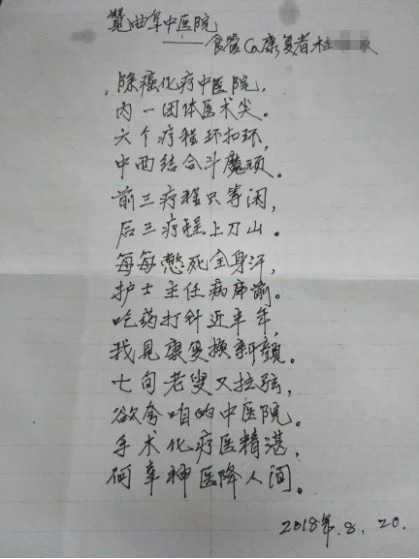 赞曲阜中医院
——食管Ca康复者杜
除癌化疗中医院，
内一团体医术尖。
六个疗程环扣环，
中西结合斗魔顽。
前三疗程只等闲，
后三疗程上刀山。
每每憋死全身汗，
护士主任病床前。
吃药打针近半年，
我见康复换新颜。
七旬老叟又拉弦，
欲夸咱的中医院。
手术化疗医精湛，
何幸神医降人间。
2018年.8.20.